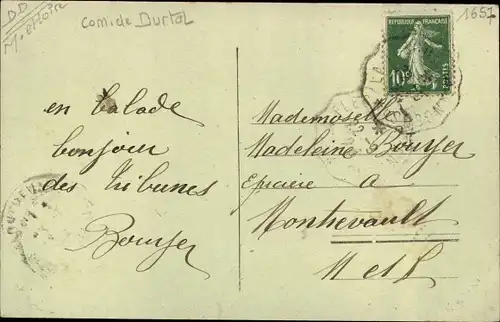 DD
M et Loire
com: de Durtal
1657
REPUBLIQUE FRANÇAISE
10c
POSTES
en balade
bonjour
des tribunes
Bouyer
Mademoisell
Madeleine Bouyer
Epiciere a
Montrevault
M et L